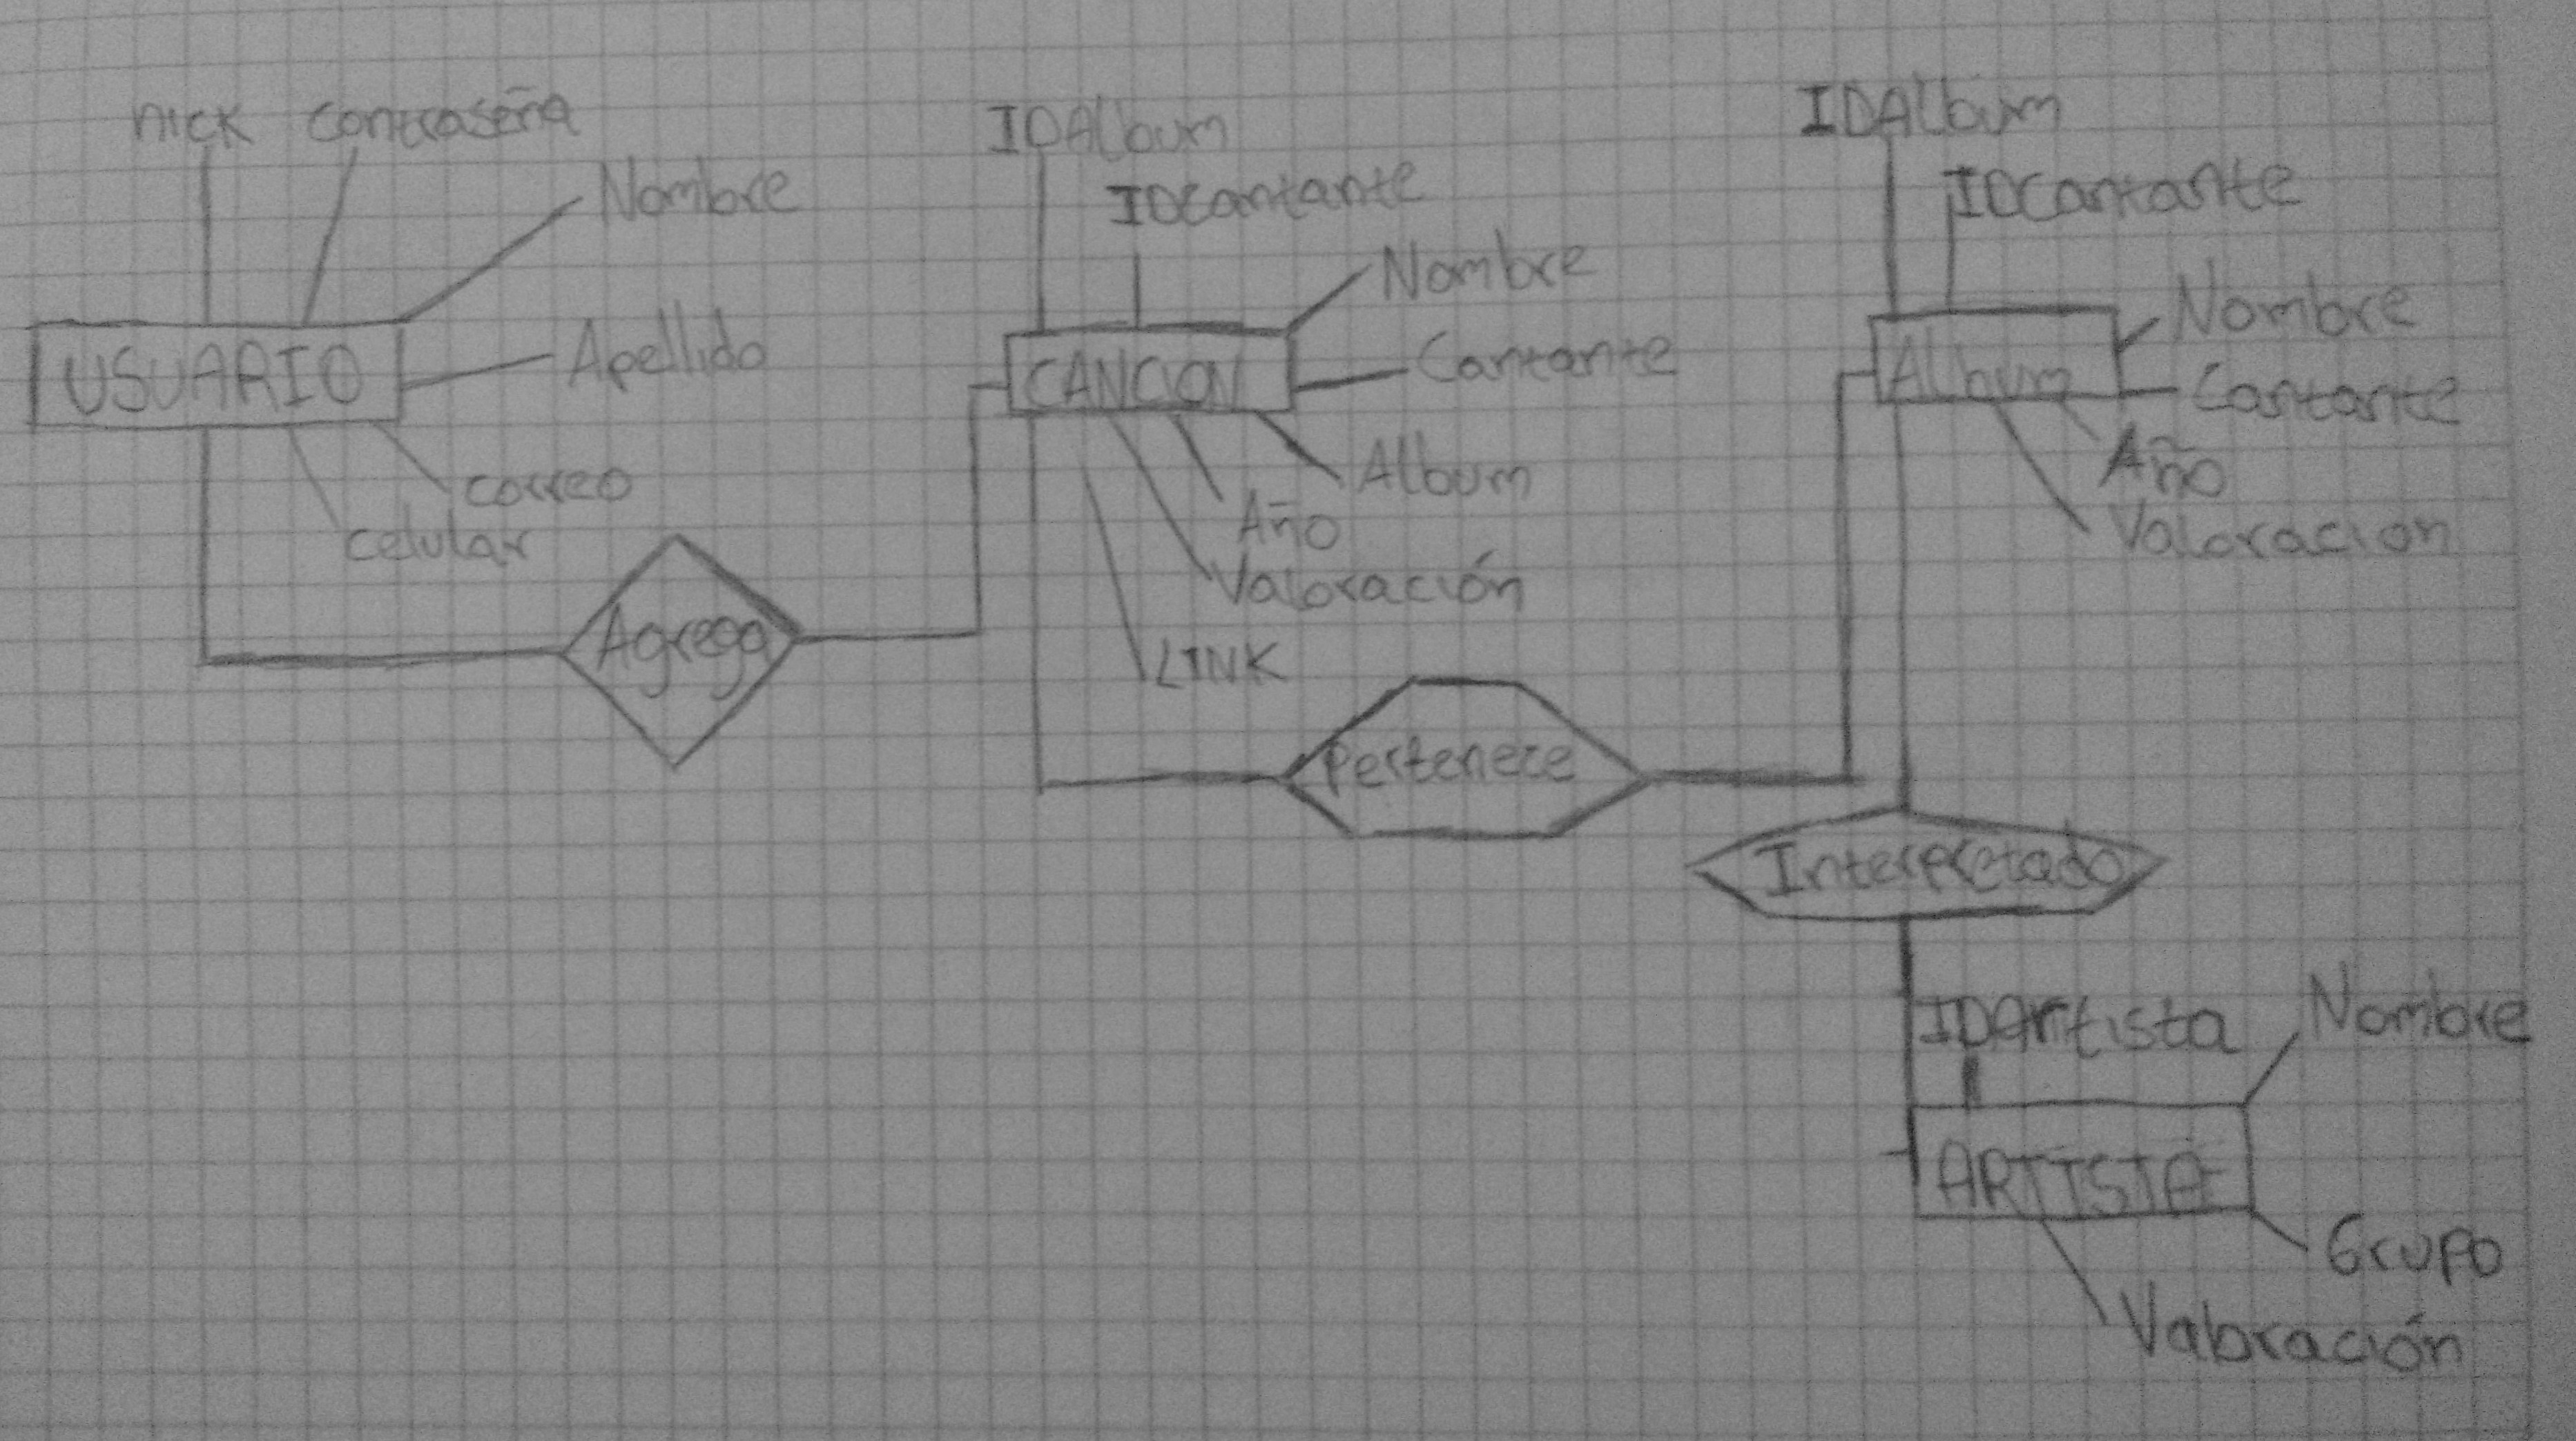 nick contraseña
Nombre
USUARIO
Apellido
correo
celular
Agrega
IDAlbum
IDCantante
Nombre
CANCION
Cantante
Album
Año
Valoración
LINK
Pertenece
IDAlbum
IDCantante
Nombre
Album
Cantante
Año
Valoracion
Interpretado
IDArtista
Nombre
ARTISTA
Grupo
Valoración